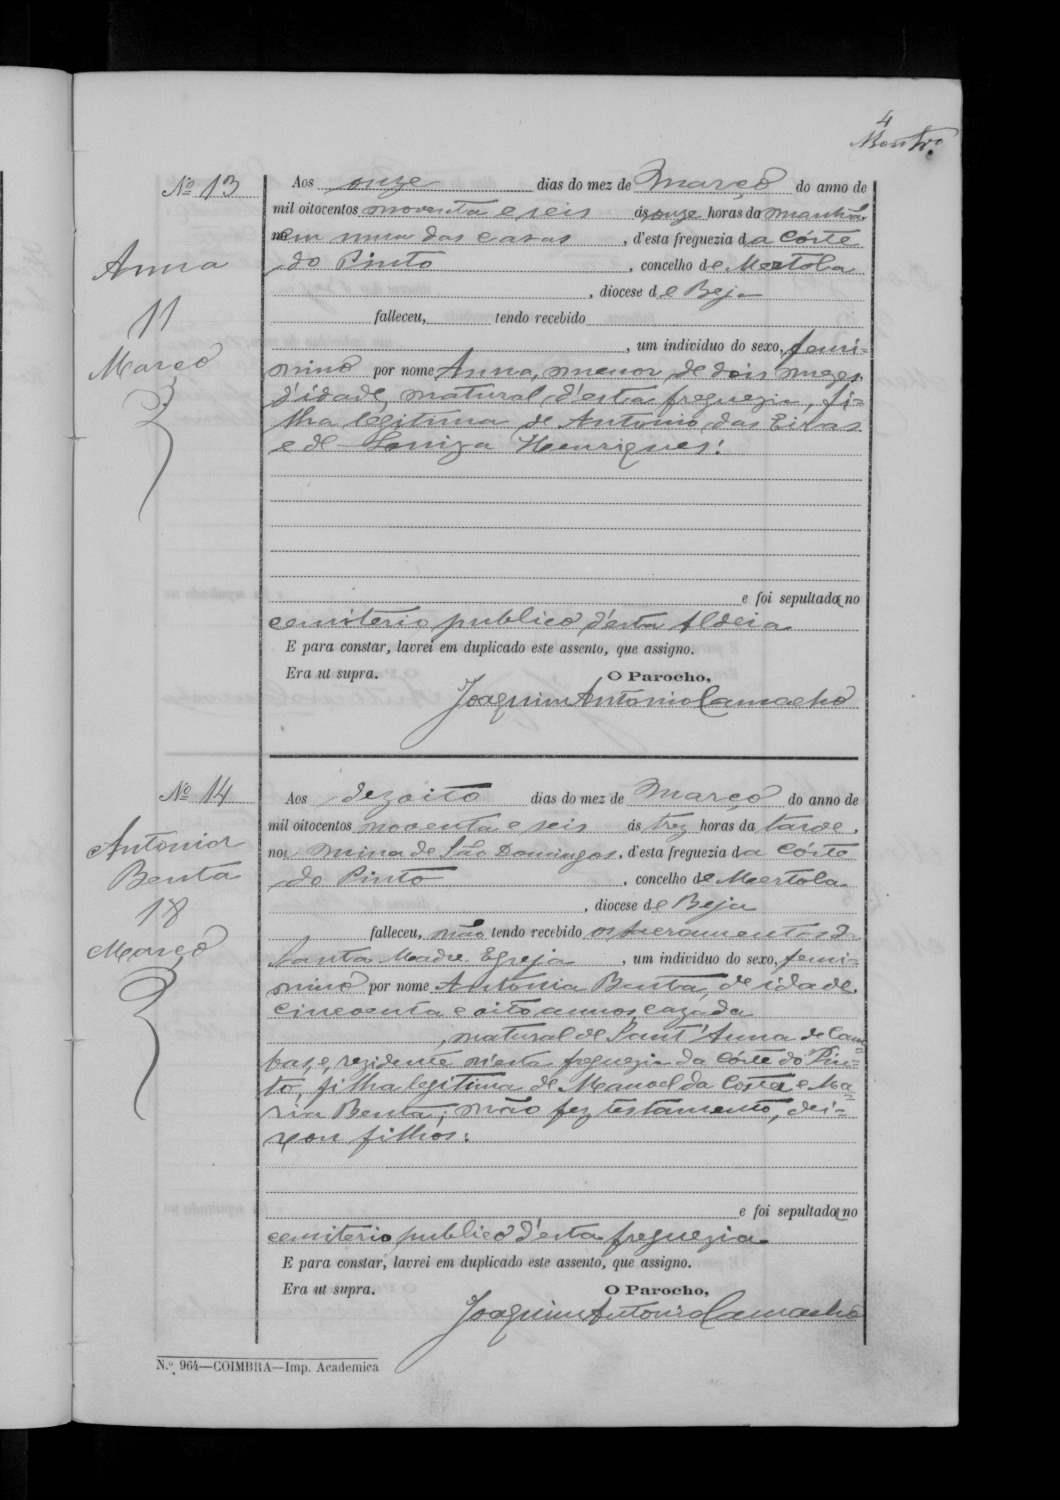 4
Montr.º
Nº 13
Anna
11
Março
Aos onze dias do mez de Março do anno de
mil oitocentos noventa e seis ás onze horas da manhã
em uma das casas, d'esta freguezia da Côrte
do Pinto, concelho de Mertola
, diocese de Beja
falleceu, tendo recebido
, um individuo do sexo, femi-
nino por nome Anna, menor de dois mezes
d'idade, natural d'esta freguezia, fi-
lha legitima de Antonio das Eiras
e de Louiza Henriques:
e foi sepultada no
cemiterio publico d'esta Aldeia
E para constar, lavrei em duplicado este assento, que assigno.
Era ut supra. O Parocho,
Joaquim Antonio Camacho
Nº 14
Antonia
Benta
18
Março
Aos dezoito dias do mez de Março do anno de
mil oitocentos noventa e seis ás trez horas da tarde,
na Mina de São Domingos, d'esta freguezia da Côrte
do Pinto, concelho de Mertola
, diocese de Beja
falleceu, não tendo recebido os sacramentos da
Santa Madre Egreja, um individuo do sexo, femi-
nino por nome Antonia Benta, de idade
cincoenta e oito annos, cazada
, natural de Sant'Anna de Cam-
bas, e, rezidente n'esta freguezia da Côrte do Pin-
to, filha legitima de Manoel da Costa e Ma-
ria Benta; não fez testamento, dei-
xou filhos:
e foi sepultada no
cemiterio publico d'esta freguezia
E para constar, lavrei em duplicado este assento, que assigno.
Era ut supra. O Parocho,
Joaquim Antonio Camacho
N.º 964—COIMBRA—Imp. Academica